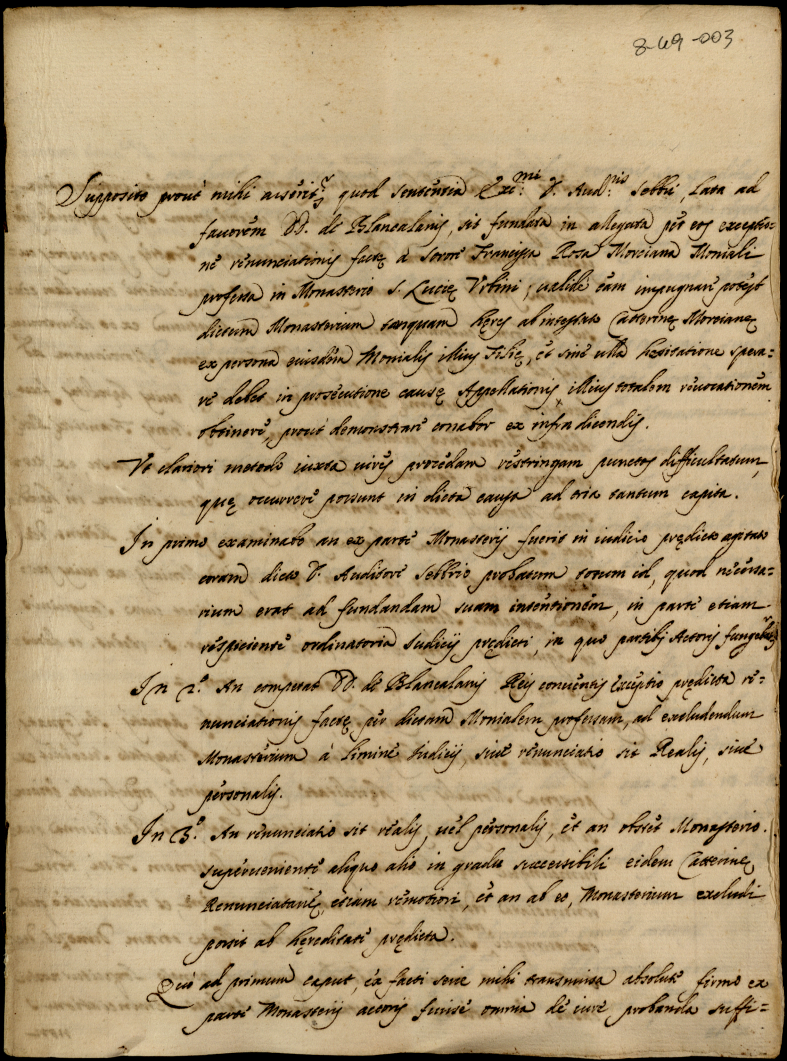 8-49-003
Supposito prout mihi asserit.r quod sententia Exi.mi D. Aud.ris Sebbij, lata ad
fauorem DD. de Blancalanis, sit fundata in allegata per eos exceptio=
ne renunciationis factę à Sorore Francisca Rosa Morciana Moniali
professa in Monasterio S. Lucię Vrbini, ualide eam impugnari potest
dictum Monasterium tanquam hęres ab intestato Catterinę Morcianę
ex persona eiusdem Monialis illius Filię, et sine ulla hęsitatione spera=
re debet in prosecutione causę Appellationis, illius totalem reuocationem
obtinere, prout demonstrare conabor ex infra dicendis.
Vt clariori metodo iuxta uires procedam restringam punctos difficultatum,
quę occurrere possunt in dicta causa ad tria tantum capita.
In primo examinabo an ex parte Monasterij fuerit in iudicio prędicto agitato
coram dicto D. Auditore Sebbio probatum totum id, quod necessa=
rium erat ad fundandam suam intentionem, in parte etiam
respiciente ordinatoria Iudicij prędicti, in quo partibus Actoris fungebatur
In 2.o An competat DD. de Blancalanis Reis conuentis exceptio prędicta re=
nunciationis factę per dictam Monialem professam, ad excludendum
Monasterium à limine Iudicij, siue renunciatio sit Realis, siue
personalis.
In 3.o An renunciatio sit realis, uel personalis, et an obstet Monasterio.
superueniente aliquo alio in gradu successibili eidem Catterinę
Renunciatarię, etiam remotiori, et an ab eo, Monasterium excludi
possit ab hęreditate prędicta.
Quo ad primum caput, ex facti serie mihi transmissa absolute firmo ex
parte Monasterij actoris fuisse omnia de iure probanda suffi=